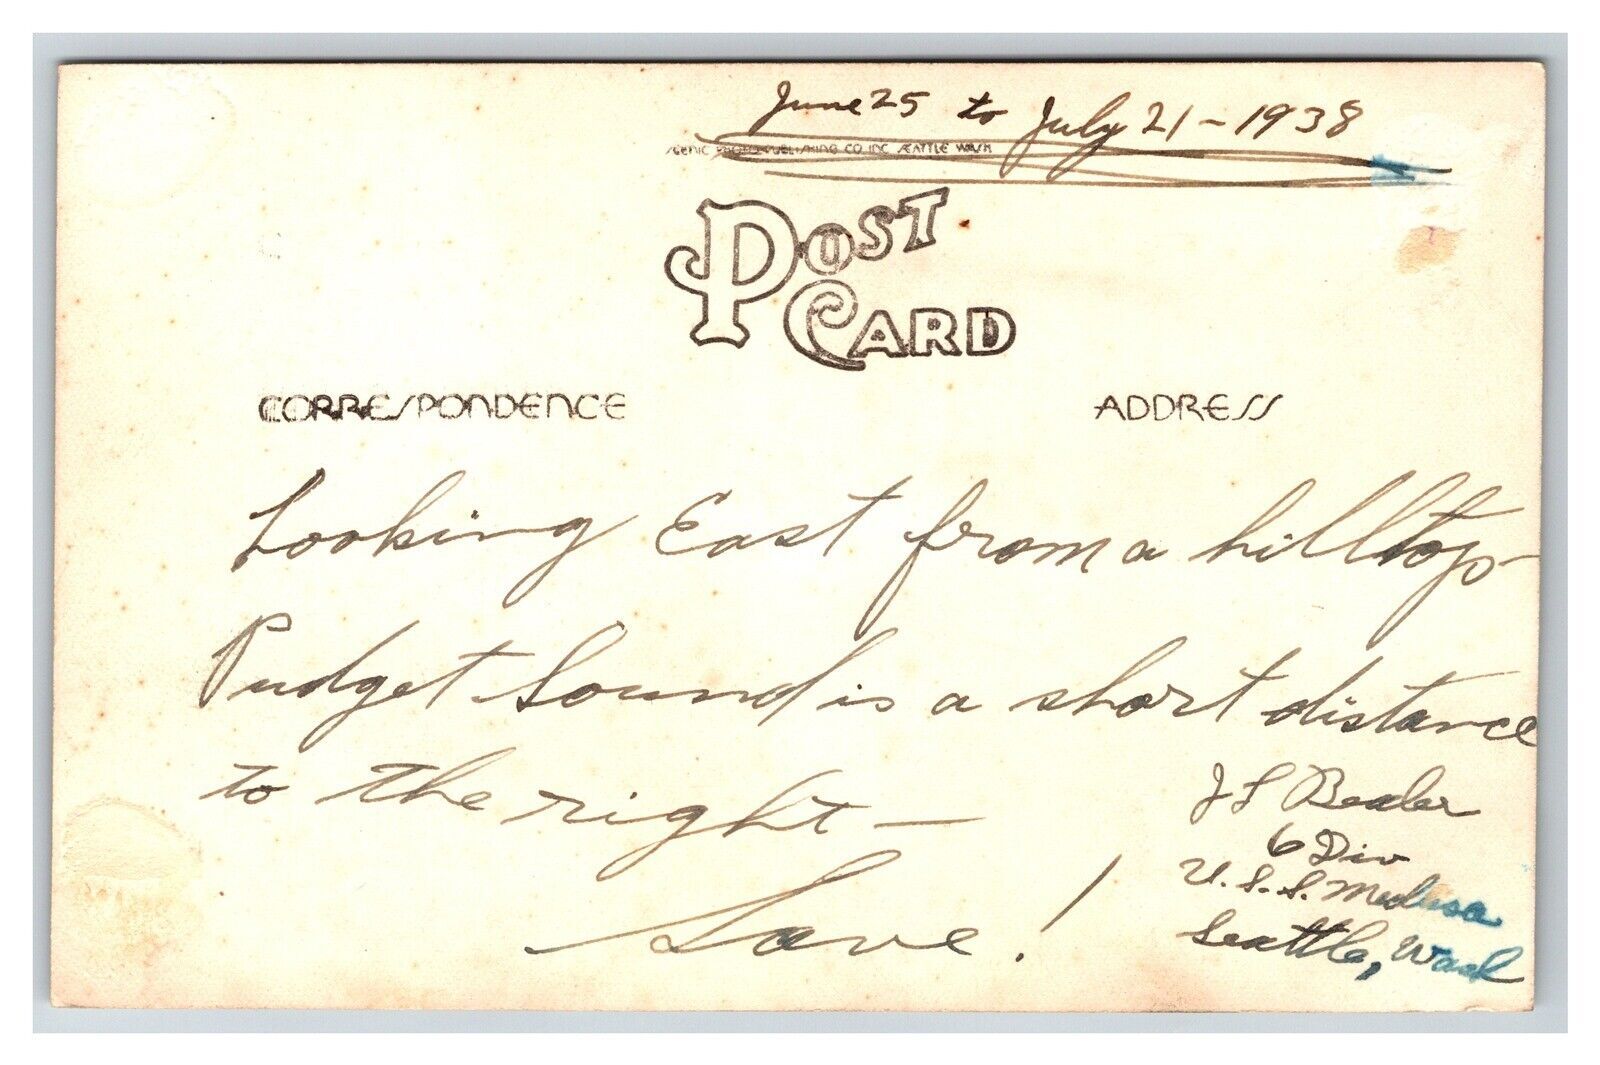 June 25 to July 21 - 1938
SCENIC PHOTO PUBLISHING CO INC SEATTLE WASH
POST
CARD
CORRESPONDENCE
ADDRESS
Looking East from a hilltop -
Pudget Sound is a short distance
to the right —
Save!
J L Bealer
6 Div
U.S.S. Medusa
Seattle, Wash